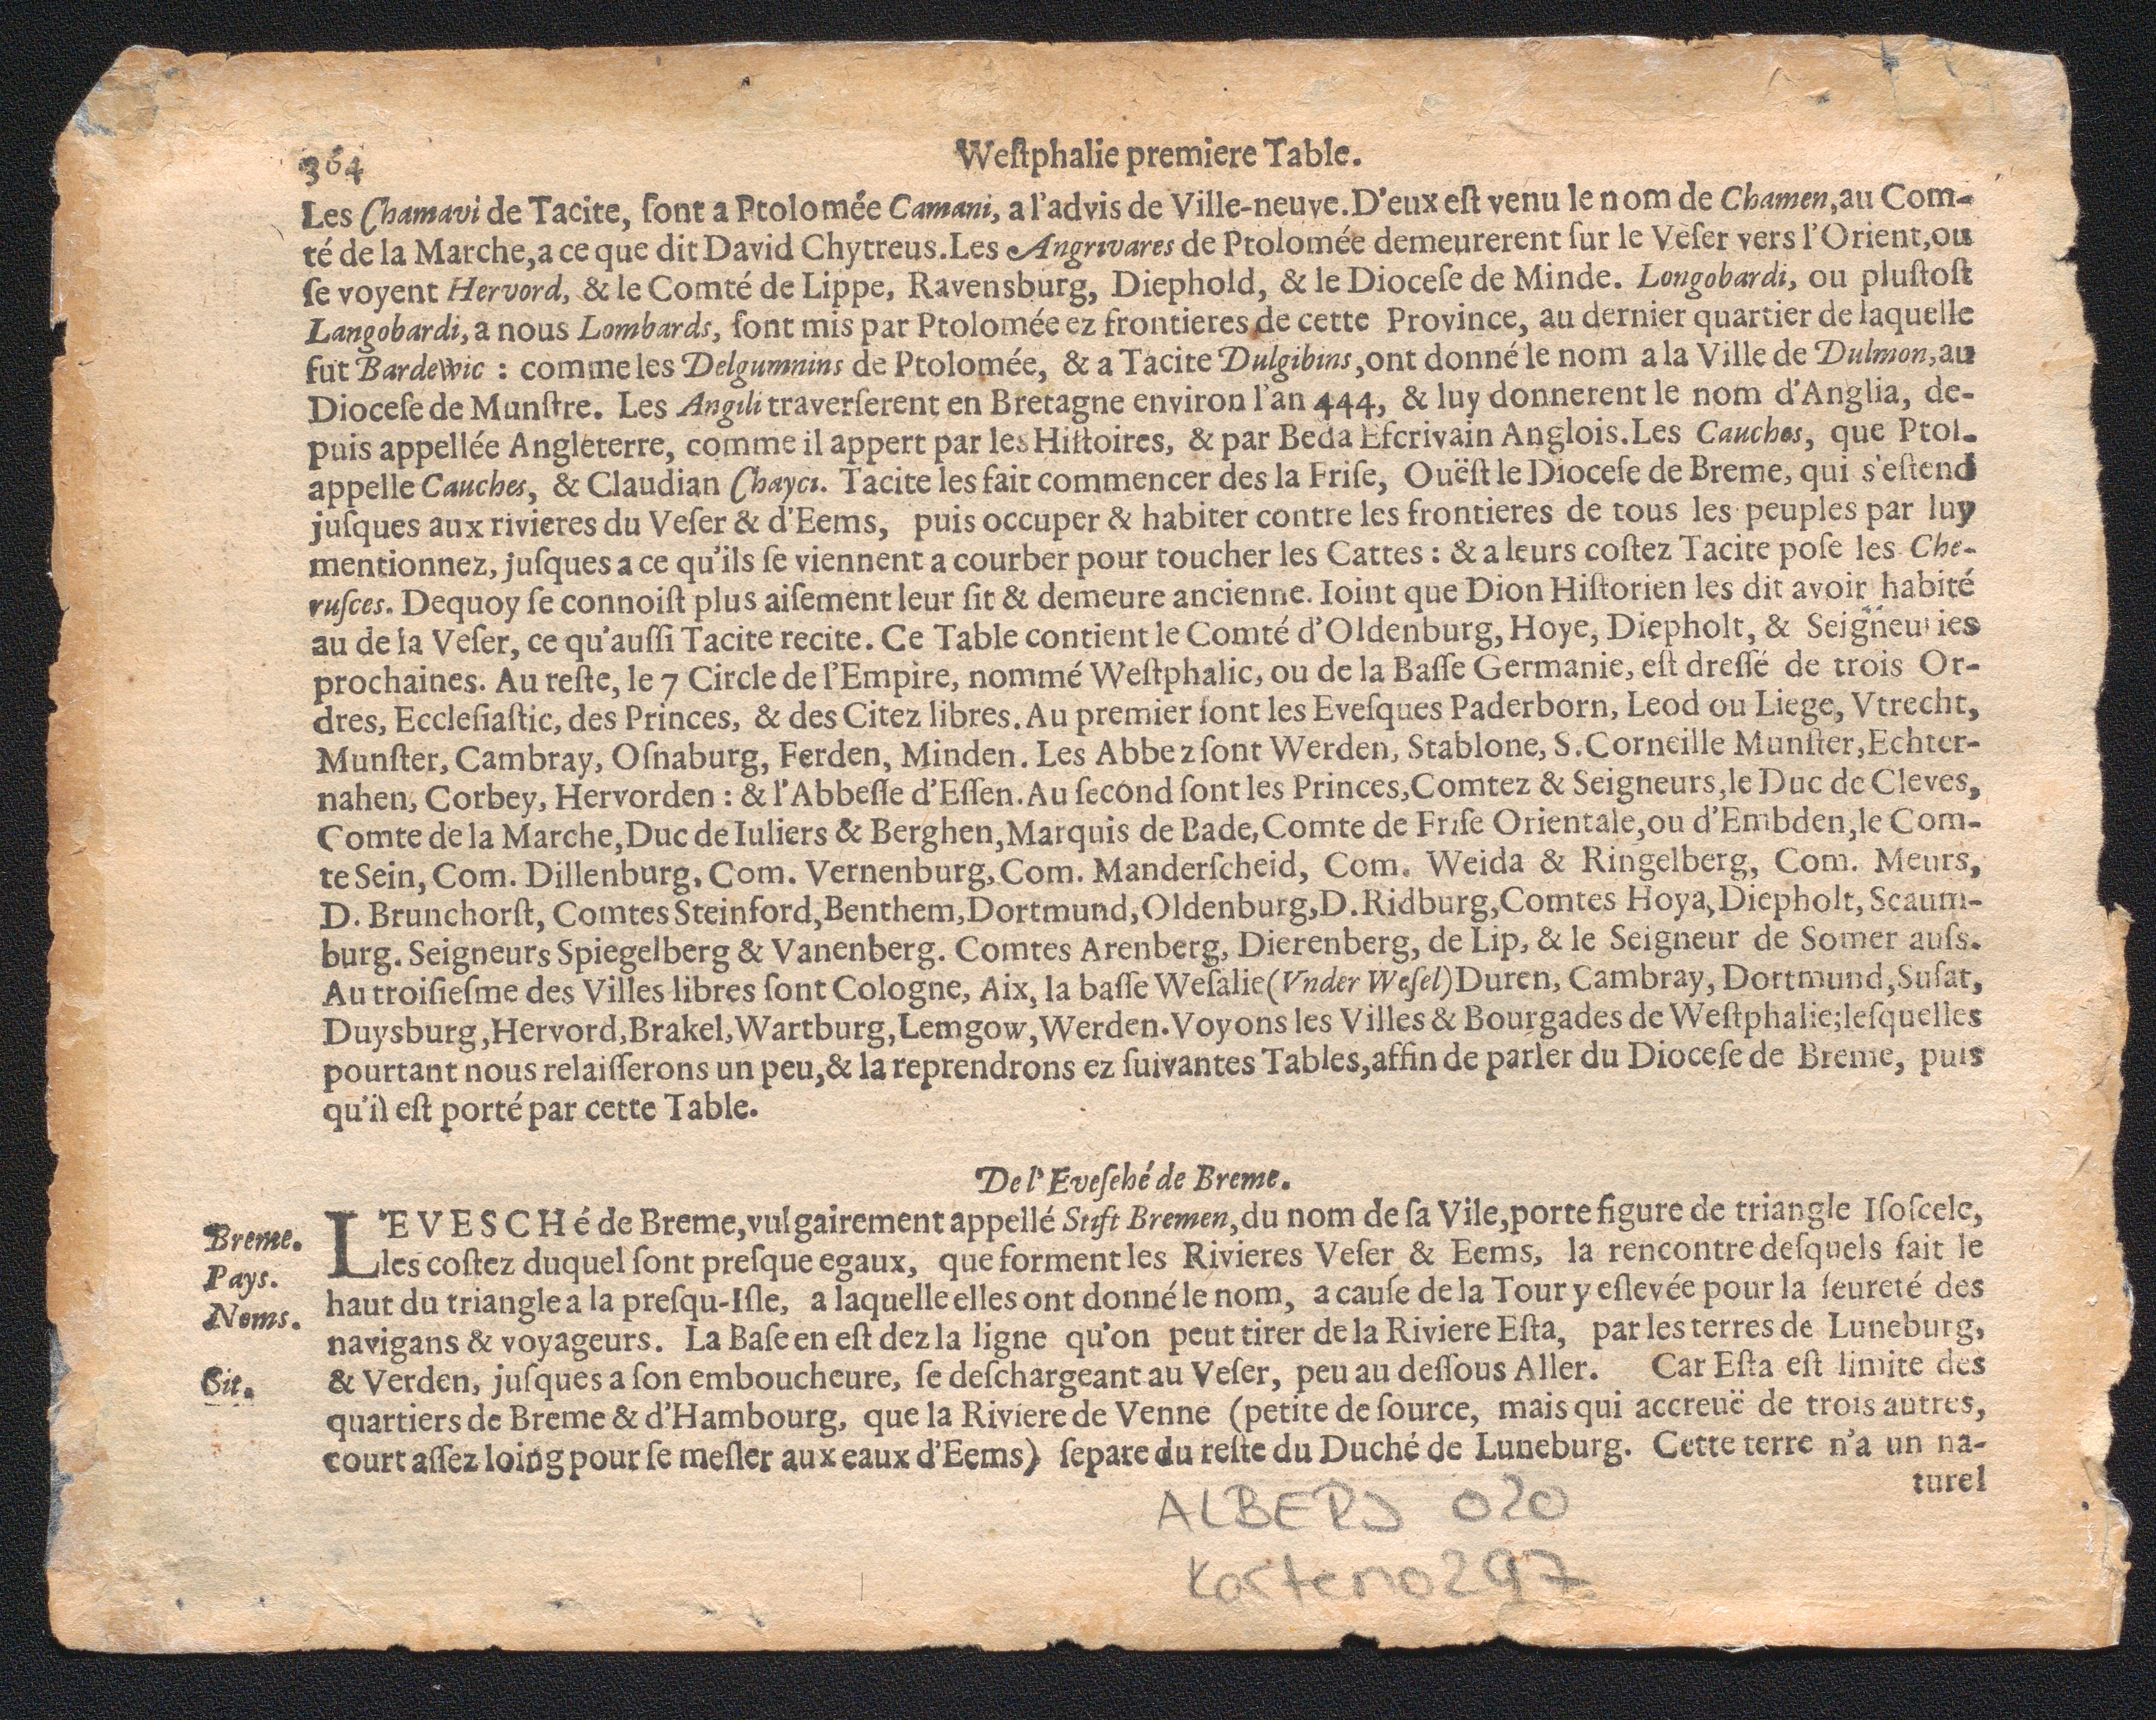 364
Weſtphalie premiere Table.
Les Chamavi de Tacite, ſont a Ptolomée Camani, a l'advis de Ville-neuve. D'eux eſt venu le nom de Chamen, au Com-
té de la Marche, a ce que dit David Chytreus. Les Angrivares de Ptolomée demeurerent ſur le Veſer vers l'Orient, ou
ſe voyent Hervord, & le Comté de Lippe, Ravensburg, Diephold, & le Dioceſe de Minde. Longobardi, ou pluſtoſt
Langobardi, a nous Lombards, ſont mis par Ptolomée ez frontieres de cette Province, au dernier quartier de laquelle
fut Bardewic : comme les Delgumnins de Ptolomée, & a Tacite Dulgibins, ont donné le nom a la Ville de Dulmon, au
Dioceſe de Munſtre. Les Angili traverſerent en Bretagne environ l'an 444, & luy donnerent le nom d'Anglia, de-
puis appellée Angleterre, comme il appert par les Hiſtoires, & par Beda Eſcrivain Anglois. Les Cauches, que Ptol.
appelle Cauches, & Claudian Chayci. Tacite les fait commencer des la Friſe, Ouëſt le Dioceſe de Breme, qui s'eſtend
juſques aux rivieres du Veſer & d'Eems, puis occuper & habiter contre les frontieres de tous les peuples par luy
mentionnez, juſques a ce qu'ils ſe viennent a courber pour toucher les Cattes : & a leurs coſtez Tacite poſe les Che-
ruſces. Dequoy ſe connoiſt plus aiſement leur ſit & demeure ancienne. Ioint que Dion Hiſtorien les dit avoir habité
au de la Veſer, ce qu'auſſi Tacite recite. Ce Table contient le Comté d'Oldenburg, Hoye, Diepholt, & Seigneuries
prochaines. Au reſte, le 7 Circle de l'Empire, nommé Weſtphalic, ou de la Baſſe Germanie, eſt dreſſé de trois Or-
dres, Eccleſiaſtic, des Princes, & des Citez libres. Au premier ſont les Eveſques Paderborn, Leod ou Liege, Vtrecht,
Munſter, Cambray, Oſnaburg, Ferden, Minden. Les Abbez ſont Werden, Stablone, S. Corneille Munſter, Echter-
nahen, Corbey, Hervorden : & l'Abbeſſe d'Eſſen. Au ſecond ſont les Princes, Comtez & Seigneurs, le Duc de Cleves,
Comte de la Marche, Duc de Iuliers & Berghen, Marquis de Bade, Comte de Friſe Orientale, ou d'Embden, le Com-
te Sein, Com. Dillenburg, Com. Vernenburg, Com. Manderſcheid, Com. Weida & Ringelberg, Com. Meurs,
D. Brunchorſt, Comtes Steinford, Benthem, Dortmund, Oldenburg, D. Ridburg, Comtes Hoya, Diepholt, Scaum-
burg. Seigneurs Spiegelberg & Vanenberg. Comtes Arenberg, Dierenberg, de Lip, & le Seigneur de Somer auſs.
Au troiſieſme des Villes libres ſont Cologne, Aix, la baſſe Weſalie (Vnder Weſel) Duren, Cambray, Dortmund, Suſat,
Duysburg, Hervord, Brakel, Wartburg, Lemgow, Werden. Voyons les Villes & Bourgades de Weſtphalie; leſquelles
pourtant nous relaiſſerons un peu, & la reprendrons ez ſuivantes Tables, affin de parler du Dioceſe de Breme, puis
qu'il eſt porté par cette Table.
De l'Eveſché de Breme.
L'EVESCHé de Breme, vulgairement appellé Stift Bremen, du nom de ſa Vile, porte figure de triangle Iſoſcele,
les coſtez duquel ſont preſque egaux, que forment les Rivieres Veſer & Eems, la rencontre deſquels fait le
haut du triangle a la preſqu-Iſle, a laquelle elles ont donné le nom, a cauſe de la Tour y eſlevée pour la ſeureté des
navigans & voyageurs. La Baſe en eſt dez la ligne qu'on peut tirer de la Riviere Eſta, par les terres de Luneburg,
& Verden, juſques a ſon emboucheure, ſe deſchargeant au Veſer, peu au deſſous Aller. Car Eſta eſt limite des
quartiers de Breme & d'Hambourg, que la Riviere de Venne (petite de ſource, mais qui accreuë de trois autres,
court aſſez loing pour ſe meſler aux eaux d'Eems) ſepare du reſte du Duché de Luneburg. Cette terre n'a un na-
turel
Breme.
Pays.
Noms.
Sit.
ALBERS 020
Karteno297